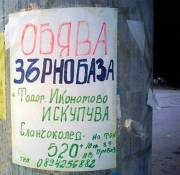 ОБЯВА
ЗЪРНОБАЗА
Тодор Икономово
ИСКУПУВА
Слънчоглед - на тон
520
тел 0894256882